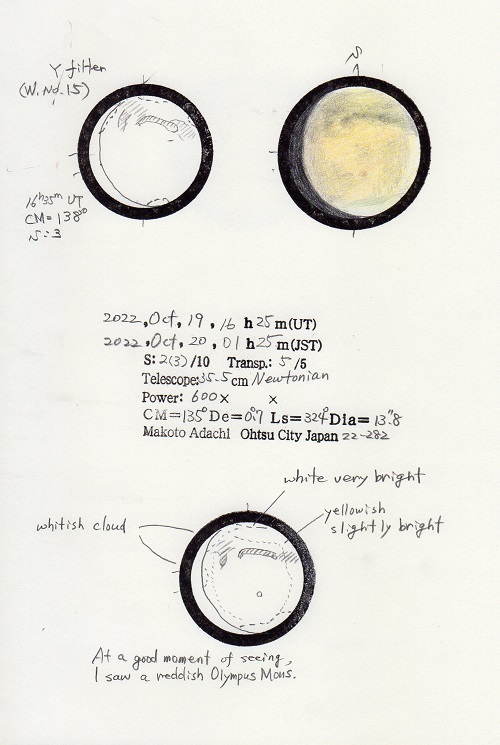 Y filter
(W. No. 15)
S
16h35m UT
CM=138°
S:3
2022, Oct, 19, 16 h 25 m(UT)
2022, Oct, 20, 01 h 25 m(JST)
S: 2(3) /10 Transp.: 5 /5
Telescope: 35.5 cm Newtonian
Power: 600× ×
CM=135° De=0.°7 Ls=324° Dia=13."8
Makoto Adachi Ohtsu City Japan 22-282
white very bright
whitish cloud
yellowish
slightly bright
At a good moment of seeing,
I saw a reddish Olympus Mons.